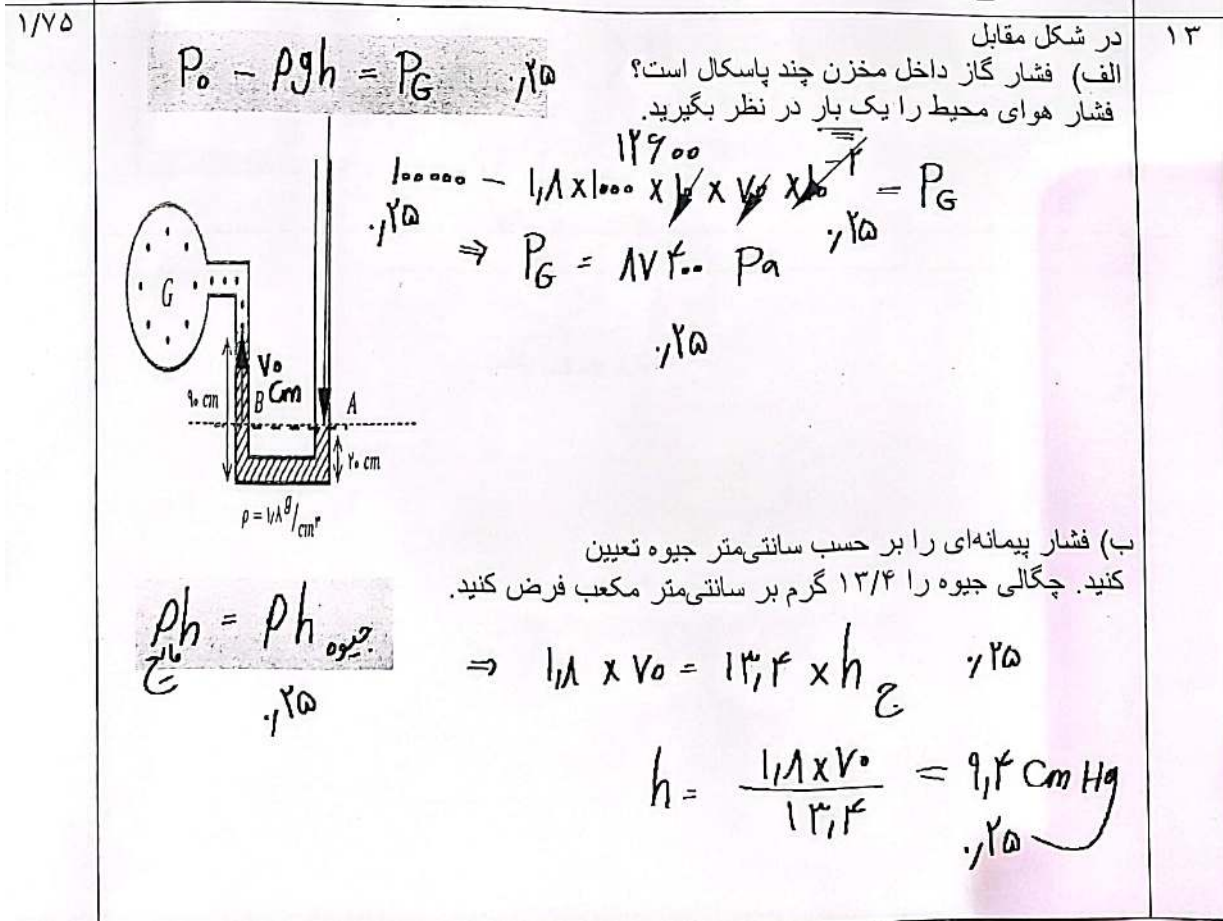 ۱/۷۵
۱۳
در شکل مقابل
الف) فشار گاز داخل مخزن چند پاسکال است؟
فشار هوای محیط را یک بار در نظر بگیرید.
P₀ - ρgh = P_G ۰٫۲۵
۱۲۶۰۰
۱۰۰۰۰۰ - ۱٫۸ x ۱۰۰۰ x ۱۰ x ۷۰ x ۱۰⁻² = P_G
۰٫۲۵ ۰٫۲۵
⇒ P_G = ۸۷۴۰۰ Pa
۰٫۲۵
G
۷۰ Cm
۹۰ cm
B
A
۲۰ cm
ρ = ۱/۸ g/cm³
ب) فشار پیمانه‌ای را بر حسب سانتی‌متر جیوه تعیین
کنید. چگالی جیوه را ۱۳/۴ گرم بر سانتی‌متر مکعب فرض کنید.
ρh مایع = ρh جیوه
۰٫۲۵
⇒ ۱٫۸ x ۷۰ = ۱۳٫۴ x h ج ۰٫۲۵
h = ۱٫۸ x ۷۰ / ۱۳٫۴ = ۹٫۴ Cm Hg
۰٫۲۵